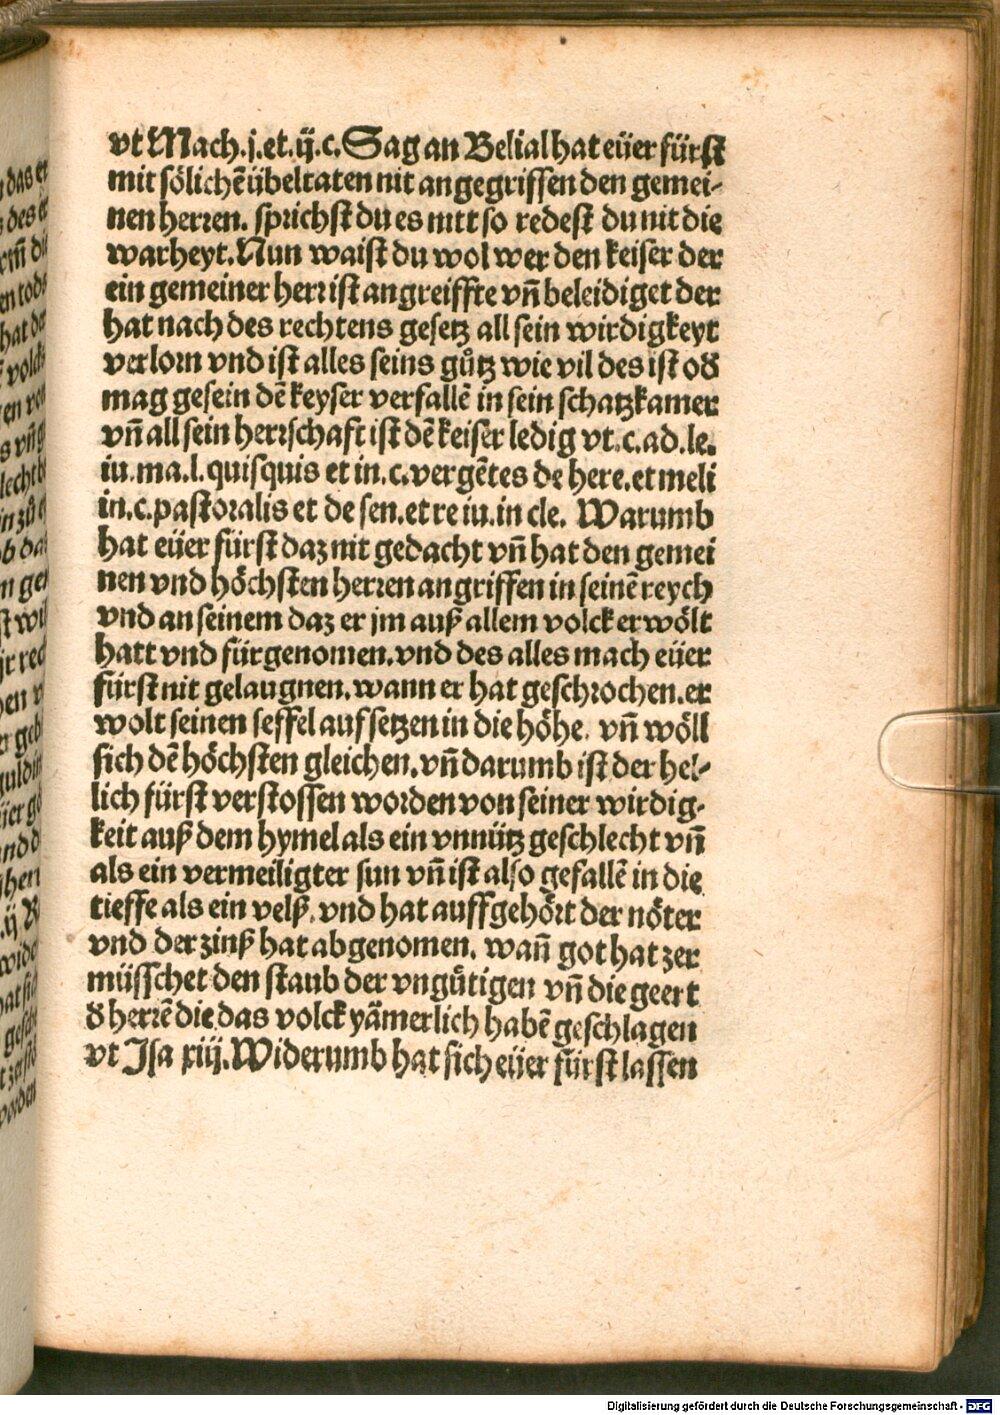 vt Mach.j.et.ij.c. Sag an Belial hat eüer fürst
mit sölichē übeltaten nit angegriffen den gemei-
nen herren. sprichst du es nitt so redest du nit die
warheyt. Nun waist du wol wer den keiser der
ein gemeiner herr ist angreiffte vn̄ beleidiget der
hat nach des rechtens gesetz all sein wirdigkeyt
verlorn vnd ist alles seins gůtz wie vil des ist oð
mag gesein dē keyser verfallē in sein schatzkamer
vn̄ all sein herrschaft ist dē keiser ledig vt.c.ad.le.
iu.ma.l.quisquis et in.c.vergētes de here.et meli
in.c.pastoralis et de sen.et re iu.in cle. Warumb
hat eüer fürst daz nit gedacht vn̄ hat den gemei
nen vnd höchsten herren angriffen in seinē reych
vnd an seinem daz er jm auß allem volck erwölt
hatt vnd fürgenomen.vnd des alles mach eüer
fürst nit gelaugnen.wann er hat geschrochen.er
wolt seinen sessel aufsetzen in die höhe. vn̄ wöll
sich dē höchsten gleichen.vn̄ darumb ist der hel-
lich fürst verstossen worden von seiner wirdig-
keit auß dem hymel als ein vnnütz geschlecht vn̄
als ein vermeiligter sun vn̄ ist also gefallē in die
tieffe als ein velß.vnd hat auffgehört der nöter
vnd der zinß hat abgenomen. wan̄ got hat zer
müsschet den staub der vngůtigen vn̄ die geert
ð herrē die das volck yämerlich habē geschlagen
vt Isa xiij. Widerumb hat sich eüer fürst lassen
Digitalisierung gefördert durch die Deutsche Forschungsgemeinschaft - DFG